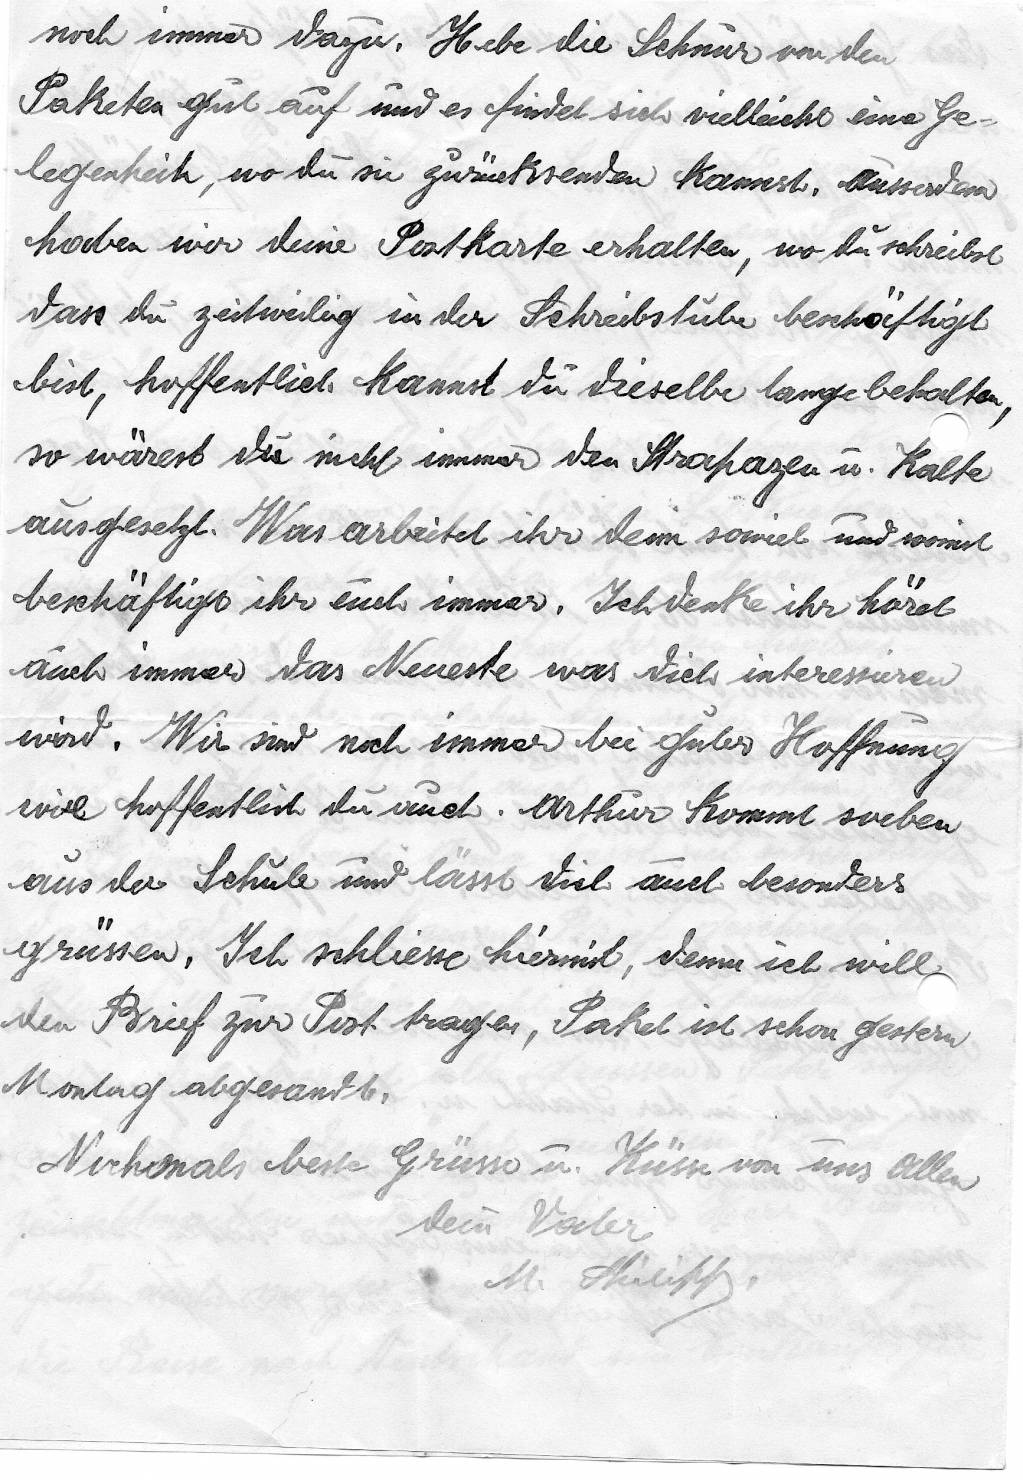 noch immer dazu. Hebe die Schnur von den
Paketen gut auf und es findet sich vielleicht eine Ge-
legenheit, wo du sie zurücksenden kannst. Ausserdem
haben wir deine Postkarte erhalten, wo du schreibst
dass du zeitweilig in der Schreibstube beschäftigt
bist, hoffentlich kannst du dieselbe lange behalten,
so wärest du nicht immer den Strapazen u. Kälte
ausgesetzt. Was arbeitet ihr denn soviel und womit
beschäftigt ihr euch immer. Ich denke ihr höret
auch immer das Neueste was dich interessieren
wird. Wir sind noch immer bei guter Hoffnung
wie hoffentlich du auch. Arthur kommt soeben
aus der Schule und lässt dich auch besonders
grüssen. Ich schliesse hiermit, denn ich will
den Brief zur Post tragen, Paket ist schon gestern
Montag abgesandt.
Nochmals beste Grüsse u. Küsse von uns allen
dein Vater
M.